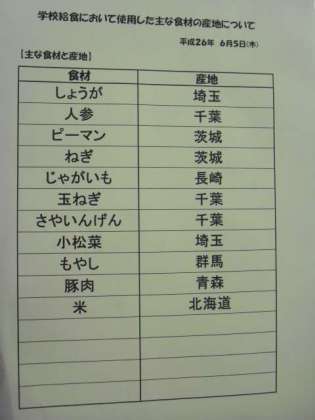 学校給食において使用した主な食材の産地について
平成26年 6月5日(木)
【主な食材と産地】
食材 産地
しょうが 埼玉
人参 千葉
ピーマン 茨城
ねぎ 茨城
じゃがいも 長崎
玉ねぎ 千葉
さやいんげん 千葉
小松菜 埼玉
もやし 群馬
豚肉 青森
米 北海道